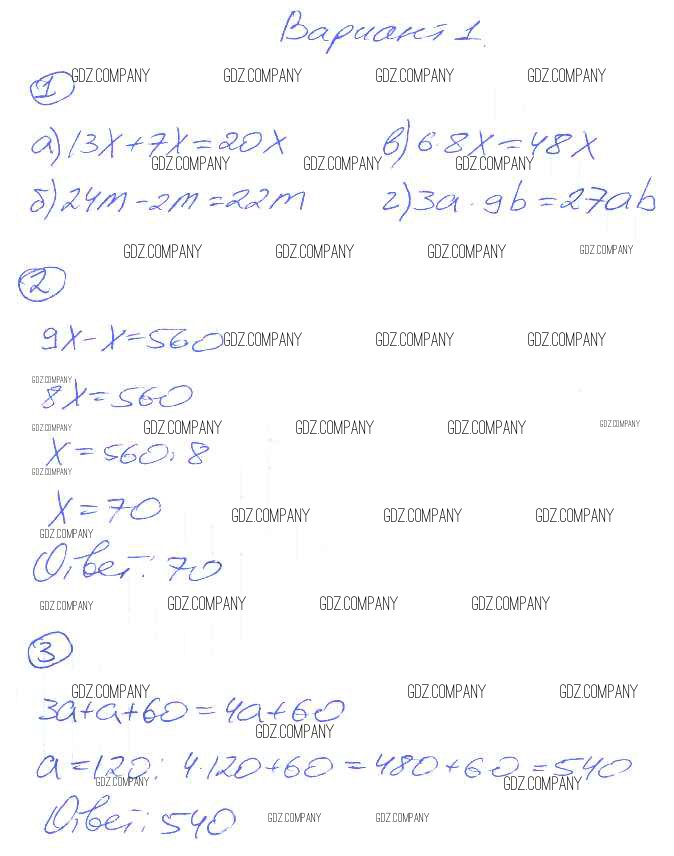 Вариант 1.
GDZ.COMPANY GDZ.COMPANY GDZ.COMPANY GDZ.COMPANY
1
а) 13x+7x=20x в) 6·8x=48x
GDZ.COMPANY GDZ.COMPANY GDZ.COMPANY
б) 24m-2m=22m г) 3a·9b=27ab
GDZ.COMPANY GDZ.COMPANY GDZ.COMPANY GDZ.COMPANY
2
9x-x=560 GDZ.COMPANY GDZ.COMPANY GDZ.COMPANY
GDZ.COMPANY
8x=560
GDZ.COMPANY GDZ.COMPANY GDZ.COMPANY GDZ.COMPANY GDZ.COMPANY
x=560:8
GDZ.COMPANY
x=70 GDZ.COMPANY GDZ.COMPANY GDZ.COMPANY
GDZ.COMPANY
Ответ: 70
GDZ.COMPANY GDZ.COMPANY GDZ.COMPANY GDZ.COMPANY
3
GDZ.COMPANY GDZ.COMPANY GDZ.COMPANY
3a+a+60=4a+60
GDZ.COMPANY
a=120: 4·120+60=480+60=540
GDZ.COMPANY GDZ.COMPANY
Ответ: 540 GDZ.COMPANY GDZ.COMPANY